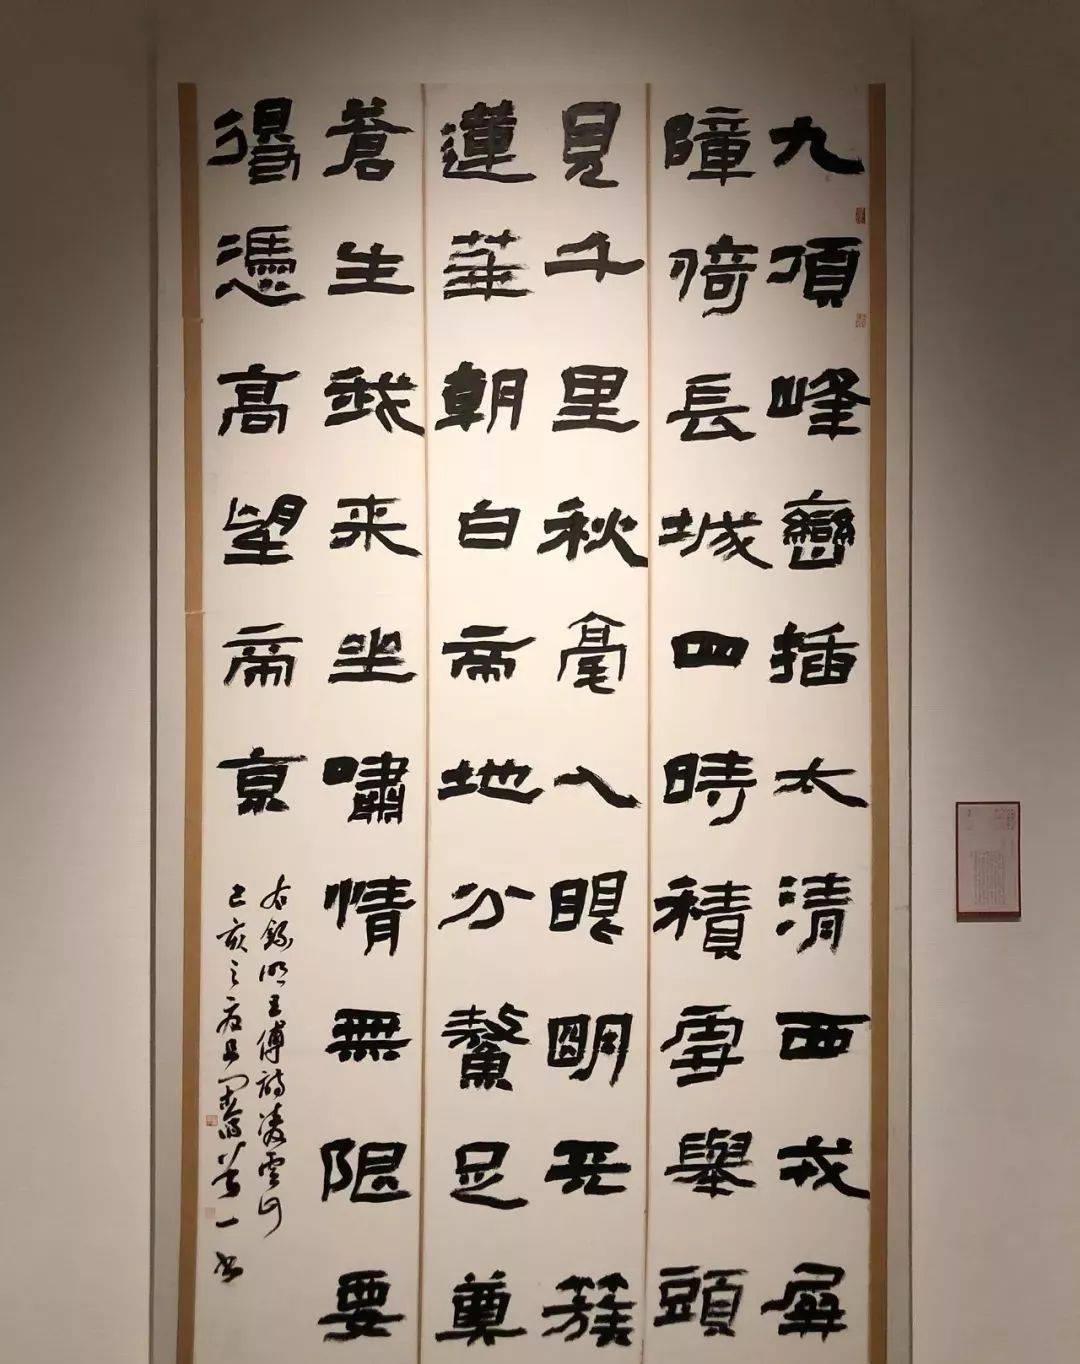 九頂峰巒插太清西戎屏
障倚長城四時積雪舉頭
見千里秋毫入眼明天簇
蓮華朝白帝地分鰲足奠
蒼生我来坐嘯情無限要
得憑高望帝京
右錄明王傅詩凌雲山
己亥之